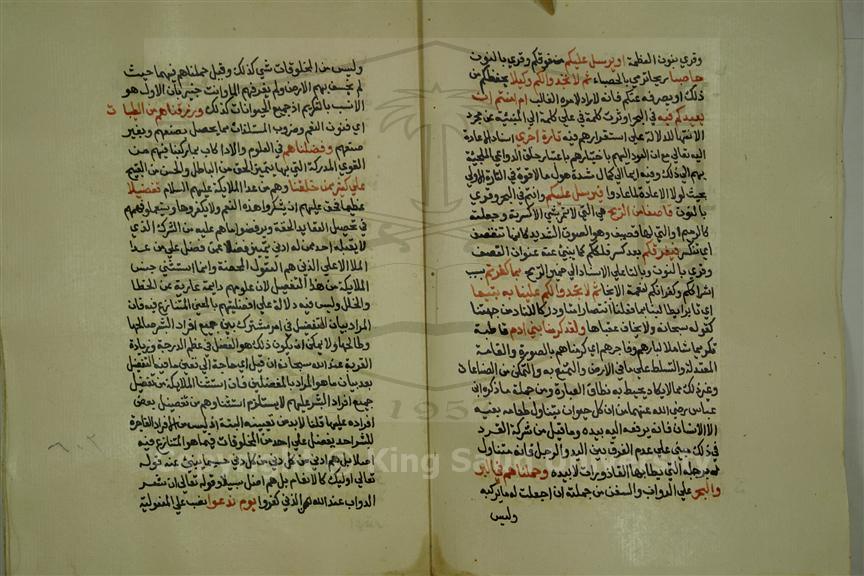 وقري بنون العظمة او يرسل عليكم من فوقكم وقري بالنون
حاصبا ريحا ترمي بالحصباء ثم لا تجدوا لكم وكيلا يحفظكم من
ذلك او يصرفه عنكم فانه لا راد لامره الغالب ام امنتم ان
يعيدكم فيه في البحر اوثرت كلمة في علي كلمة الي المنبئة عن مجرد
الانتها للدلالة علي استقرارهم فيه تارة اخري اسناد الاعادة
اليه تعالي مع ان العود اليهم باختيارهم باعتبار خلق الدواعي الملجئة
بهم الي ذلك وفيه ايما الي كمال شدة هول ما لاقوه في التارة الاولي
بحيث لولا الاعادة لما عادوا فيرسل عليكم وانتم في البحر وقري
بالنون قاصفا من الريح هي التي لا تمر بشي الا كسرته وجعلته
كالرميم او التي لها قصيف وهو الصوت الشديد كانها تنقصف
اي تنكسر فيغرقكم بعد كسر فلككم كما ينبئ عنه عنوان القصف
وقري بالنون وبالتا علي الاسناد الي ضمير الريح بما كفرتم بسبب
اشراككم وكفرانكم لنعمة الانجا ثم لا تجدوا لكم علينا به تبيعا
اي ثايرا يطالبنا بما فعلنا انتصارا منا ودركا للثار من جهتنا
كقوله سبحانه ولا يخاف عقباها ولقد كرمنا بني ادم قاطبة
تكريما شاملا لبرهم وفاجرهم اي كرمناهم بالصورة والقامة
المعتدلة والتسلط علي ما في الارض والتمتع به والتمكن من الصناعات
وغير ذلك مما لا يكاد يحيط به نطاق العبارة ومن جملة ما ذكره ابن
عباس رضي الله عنهما من ان كل حيوان يتناول طعامه بفيه
الا الانسان فانه يرفعه اليه بيده وما قيل من شركة القرد
في ذلك مبني علي عدم الفرق بين اليد والرجل فانه متناول
له برجله التي يطا بها القاذورات لا بيده وحملناهم في البر
والبحر علي الدواب والسفن من حملته اذا جعلت له ما يركبه
وليس
وليس من المخلوقات شي كذلك وقيل حملناهم فيهما حيث
لم نخسف بهم الارض ولم نغرقهم بالما وانت خبير بان الاول هو
الانسب بالتكريم اذ جميع الحيوانات كذلك ورزقناهم من الطيبات
اي فنون النعم وضروب المستلذات مما يحصل بصنعهم وبغير
صنعهم وفضلناهم في العلوم والادراكات بما ركبنا فيهم من
القوي المدركة التي بها يتميز الحق من الباطل والحسن من القبيح
علي كثير ممن خلقنا وهم من عدا الملايكة عليهم السلام تفضيلا
عظيما فحق عليهم ان يشكروا هذه النعم ولا يكفروها ويستعملوا قواهم
في تحصيل العقايد الحقة ويرفضوا ما هم عليه من الشرك الذي
لا يقبله احد ممن له ادني تمييز فضلا عمن فضل علي من عدا
الملا الاعلي الذي هم العقول المحضة وانما استثني جنس
الملايكة من هذا التفضيل لان علومهم دايمة عارية عن الخطا
والخلل وليس فيه دلالة علي افضليتهم بالمعني المتنازع فيه فان
المراد بيان التفضيل في امر مشترك بين جميع افراد البشر صالحها
وطالحها ولا يمكن ان يكون ذلك هو الفضل في عظم الدرجة وزيادة
القربة عند الله سبحانه ان قيل اي حاجة الي تعيين ما فيه التفضيل
بعد بيان ما هو المراد بالمفضلين فان استثنا الملايكة من تفضيل
جميع افراد البشر عليهم لا يستلزم استثناهم من تفضيل بعض
افراده عليهم قلنا لا بد من تعيينه البتة اذ ليس من الافراد الفاجرة
للبشر احد يفضل علي احد من المخلوقات فيما هو المتنازع فيه
اصلا بل هم ادني من كل دني حسبما ينبئ عنه قوله
تعالي اوليك كالانعام بل هم اضل سبيلا وقوله تعالي ان شر
الدواب عند الله الذي كفروا يوم ندعوا نصب علي المفعولية